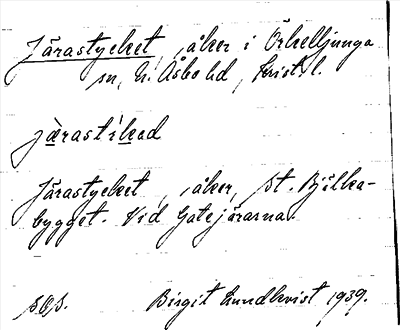 Järastycket, åker i Örkelljunga
sn, N. Åsbo hd, Krist. l.
järastikad
Järastycket, åker, St. Bjälka-
bygget. Vid Gatejärarna.
s.o.s.
Birgit Lundkvist 1939.